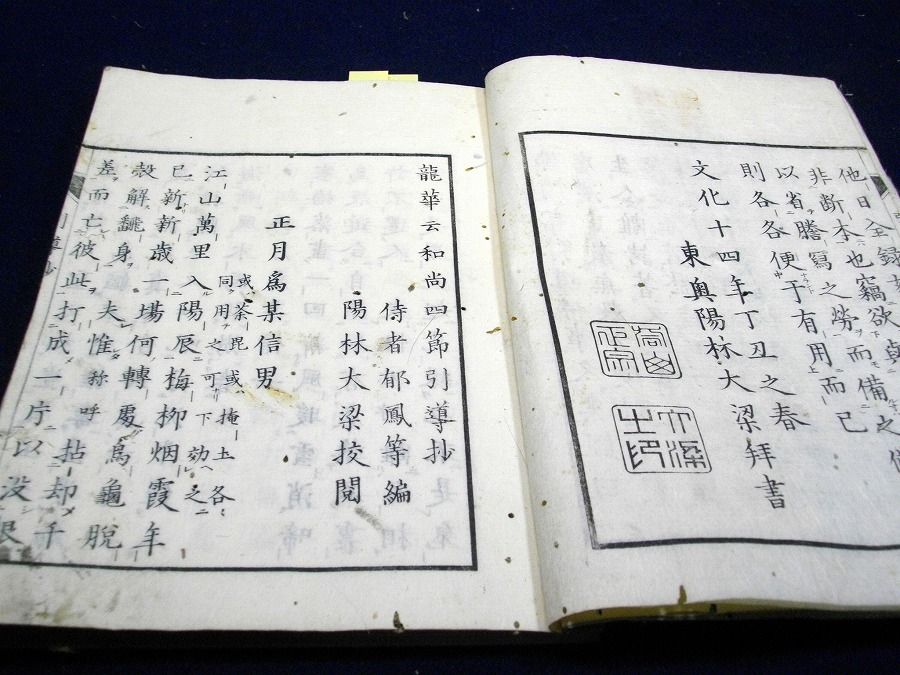 他日全録
非斷本也竊欲
以省謄寫之勞而備之
則各各便于有用而已
文化十四年丁丑之春
東奥陽林大梁拜書
龍華云和尚四節引導抄
侍者郁鳳等編
陽林大梁挍閲
正月爲某信男
或荼毘或掩土各
同用之可下効之
江山萬里入陽辰梅柳烟霞年
已新新歳一場何轉處烏龜脱
殻解飜身夫惟称呼拈却千
差而亡彼此打成一片以没